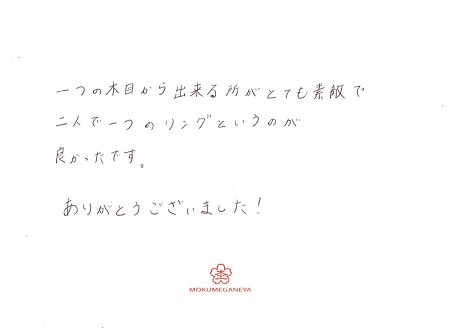 一つの木目から出来る所がとても素敵で
二人で一つのリングというのが
良かったです。
ありがとうございました!
MOKUMEGANEYA